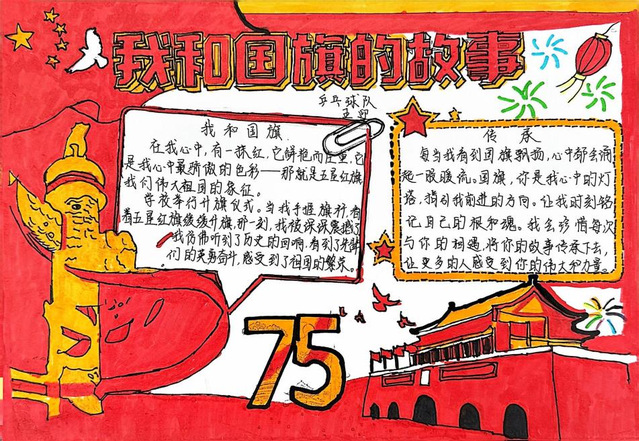 我和国旗的故事
乒乓球队
我和国旗
在我心中,有一抹红,它鲜艳而庄重,它
是我心中最骄傲的色彩——那就是五星红旗
我们伟大祖国的象征。
学校举行升旗仪式。当我手握旗杆,看
着五星红旗缓缓升旗,那一刻,我被深深震撼了
我仿佛听到了历史的回响,看到了先辈
们的英勇奋斗,感受到了祖国的繁荣。
传承
每当我看到国旗飘扬,心中都会涌
起一股暖流。国旗,你是我心中的灯
塔,指引我前进的方向。让我时刻铭
记自己的根和魂。我会珍惜每次
与你的相遇,将你的故事传承下去,
让更多的人感受到你的伟大和力量。
75